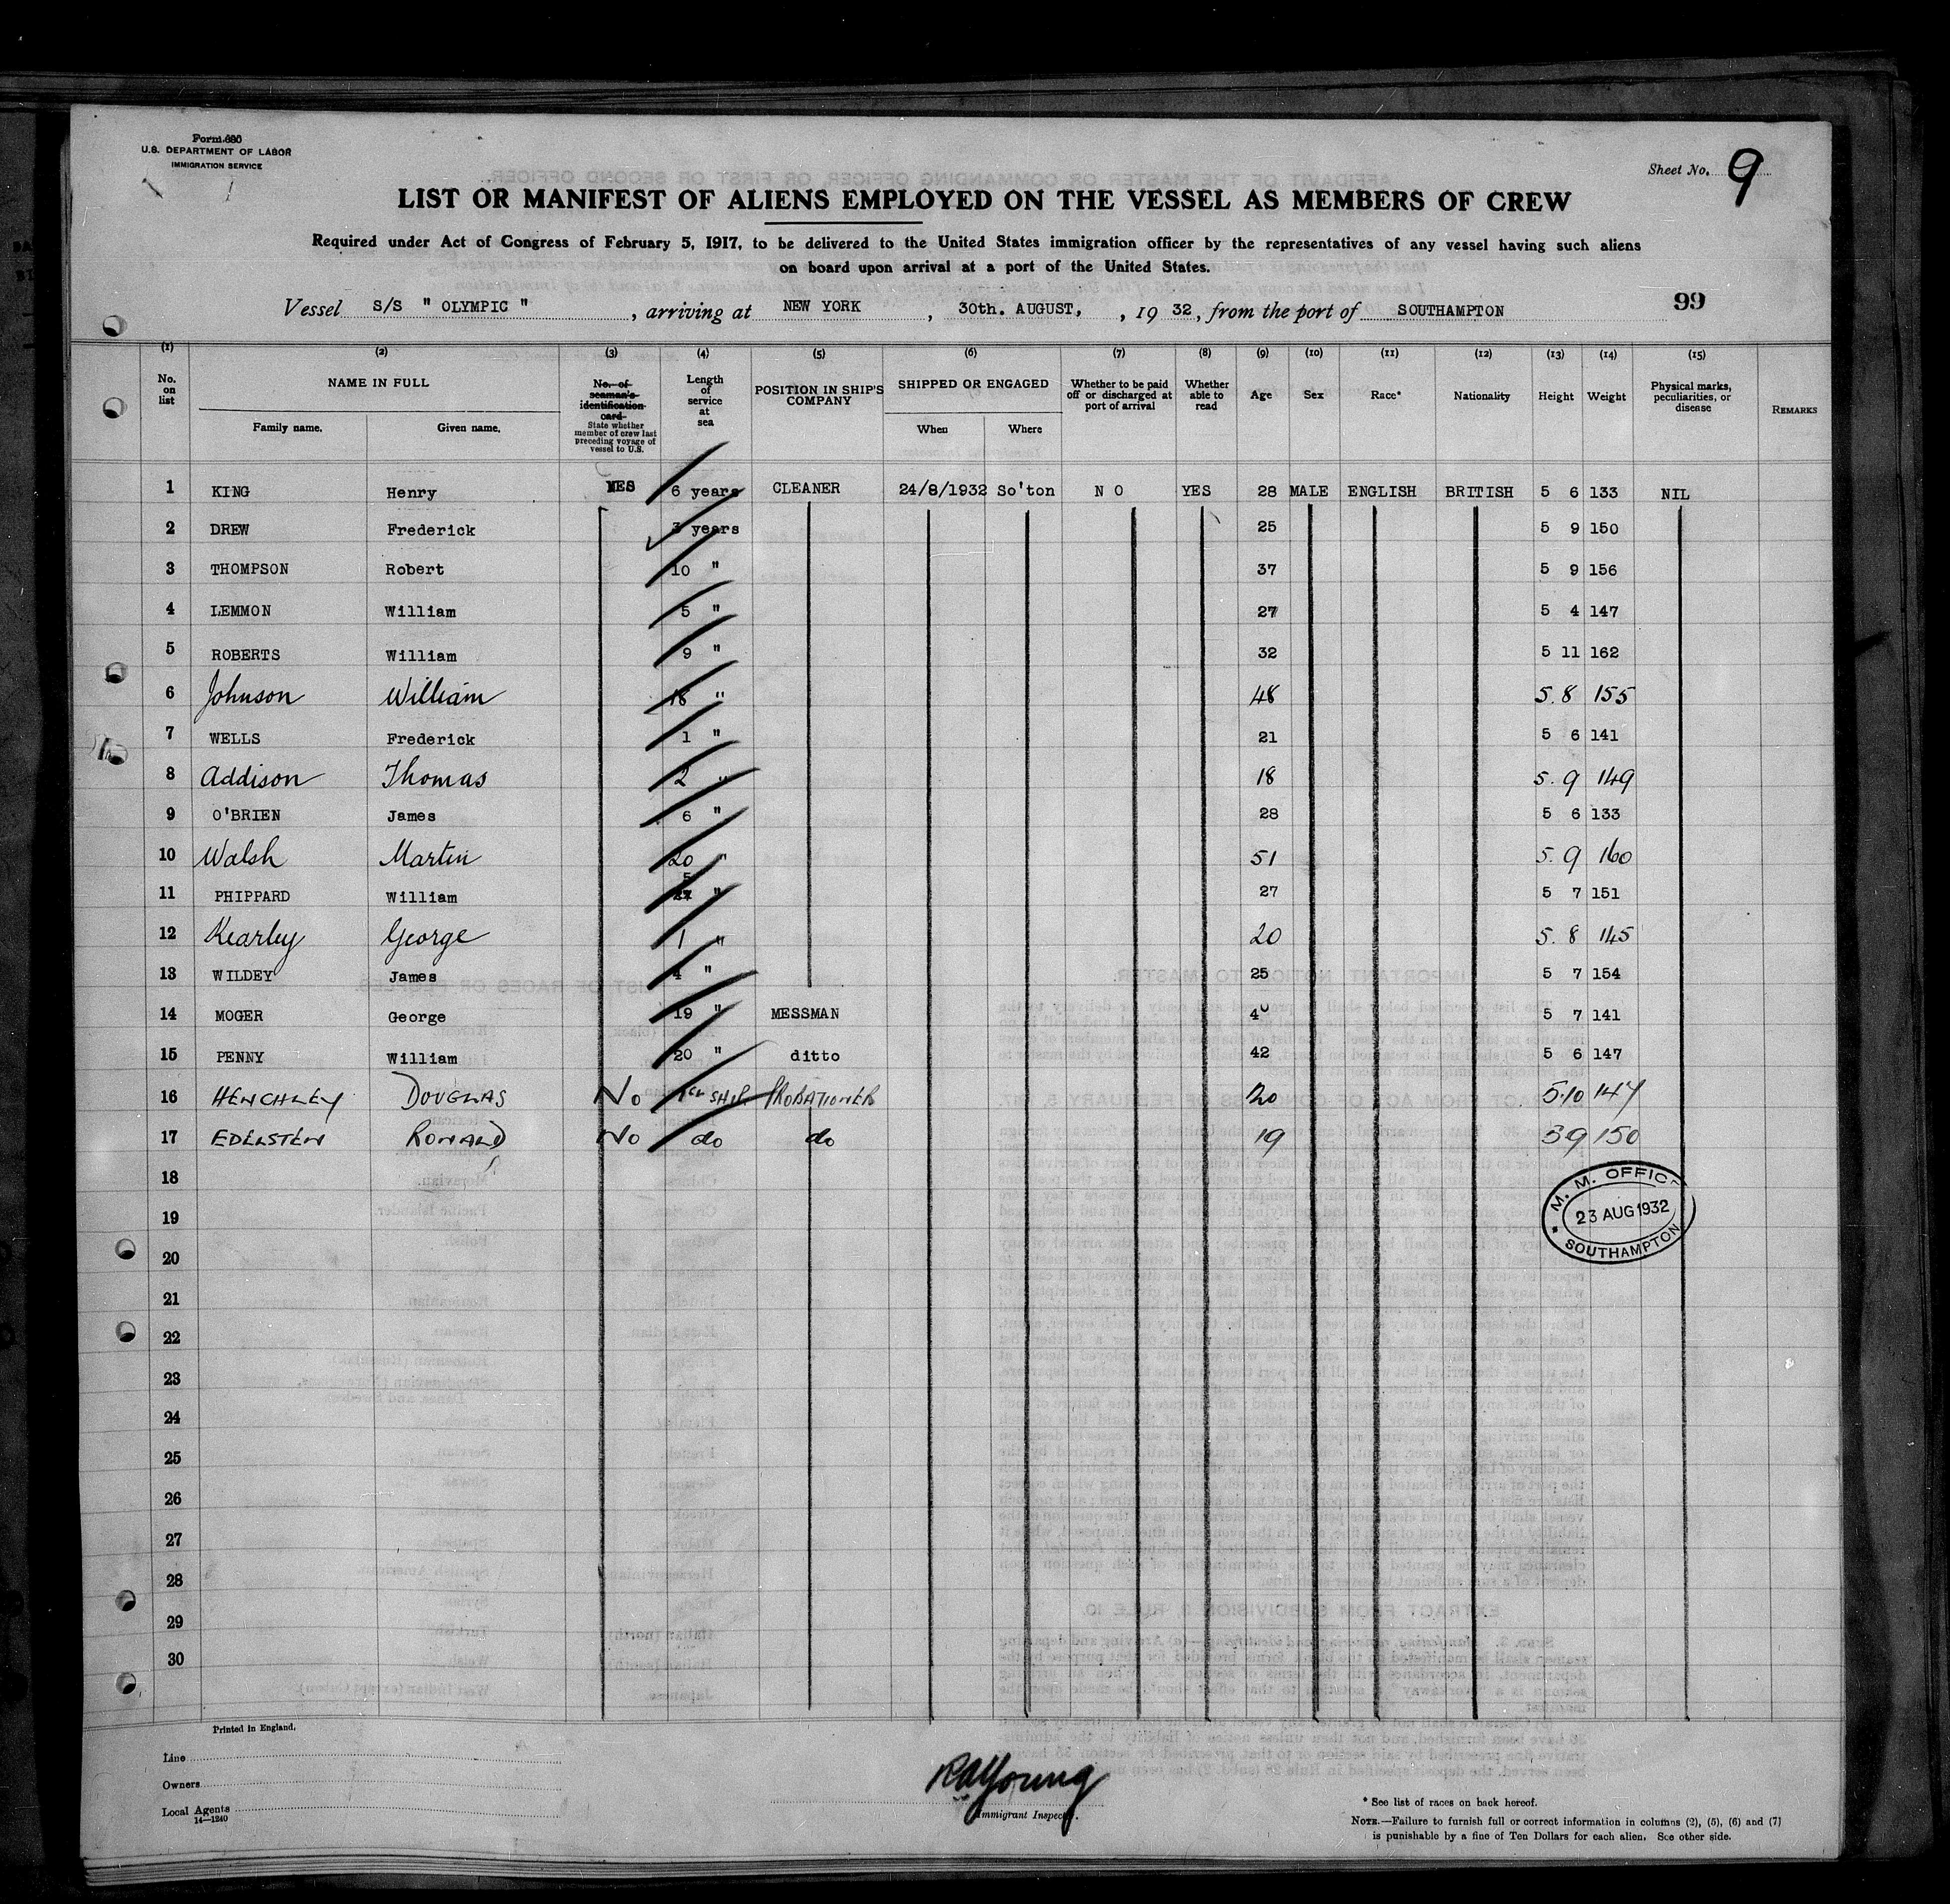 Form 680
U.S. DEPARTMENT OF LABOR
IMMIGRATION SERVICE
Sheet No. 9
LIST OR MANIFEST OF ALIENS EMPLOYED ON THE VESSEL AS MEMBERS OF CREW
Required under Act of Congress of February 5, 1917, to be delivered to the United States immigration officer by the representatives of any vessel having such aliens
on board upon arrival at a port of the United States.
Vessel S/S " OLYMPIC " , arriving at NEW YORK , 30th. AUGUST, , 19 32, from the port of SOUTHAMPTON 99
(1) (2) (3) (4) (5) (6) (7) (8) (9) (10) (11) (12) (13) (14) (15)
No. on list NAME IN FULL Family name. Given name. No. of seaman's identification card State whether member of crew last preceding voyage of vessel to U.S. Length of service at sea POSITION IN SHIP'S COMPANY SHIPPED OR ENGAGED When Where Whether to be paid off or discharged at port of arrival Whether able to read Age Sex Race* Nationality Height Weight Physical marks, peculiarities, or disease REMARKS
1 KING Henry YES 6 years CLEANER 24/8/1932 So'ton N O YES 28 MALE ENGLISH BRITISH 5 6 133 NIL
2 DREW Frederick 3 years 25 5 9 150
3 THOMPSON Robert 10 " 37 5 9 156
4 LEMMON William 5 " 27 5 4 147
5 ROBERTS William 9 " 32 5 11 162
6 Johnson William 18 " 48 5.8 155
7 WELLS Frederick 1 " 21 5 6 141
8 Addison Thomas 2 " 18 5.9 149
9 O'BRIEN James 6 " 28 5 6 133
10 Walsh Martin 20 " 51 5.9 160
11 PHIPPARD William 5 " 27 5 7 151
12 Kearley George 1 " 20 5.8 145
13 WILDEY James 4 " 25 5 7 154
14 MOGER George 19 " MESSMAN 40 5 7 141
15 PENNY William 20 " ditto 42 5 6 147
16 HENCHLEY DOUGLAS No 1st SHIP PROBATIONER 20 5.10 147
17 EDELSTEN RONALD No do do 19 5 9 150
18
19
20
21
22
23
24
25
26
27
28
29
30
M. M. OFFICE
23 AUG 1932
SOUTHAMPTON
Printed in England.
Line
Owners
Local Agents
14—1240
RAYoung
Immigrant Inspector.
* See list of races on back hereof.
NOTE.—Failure to furnish full or correct information in columns (2), (5), (6) and (7)
is punishable by a fine of Ten Dollars for each alien. See other side.